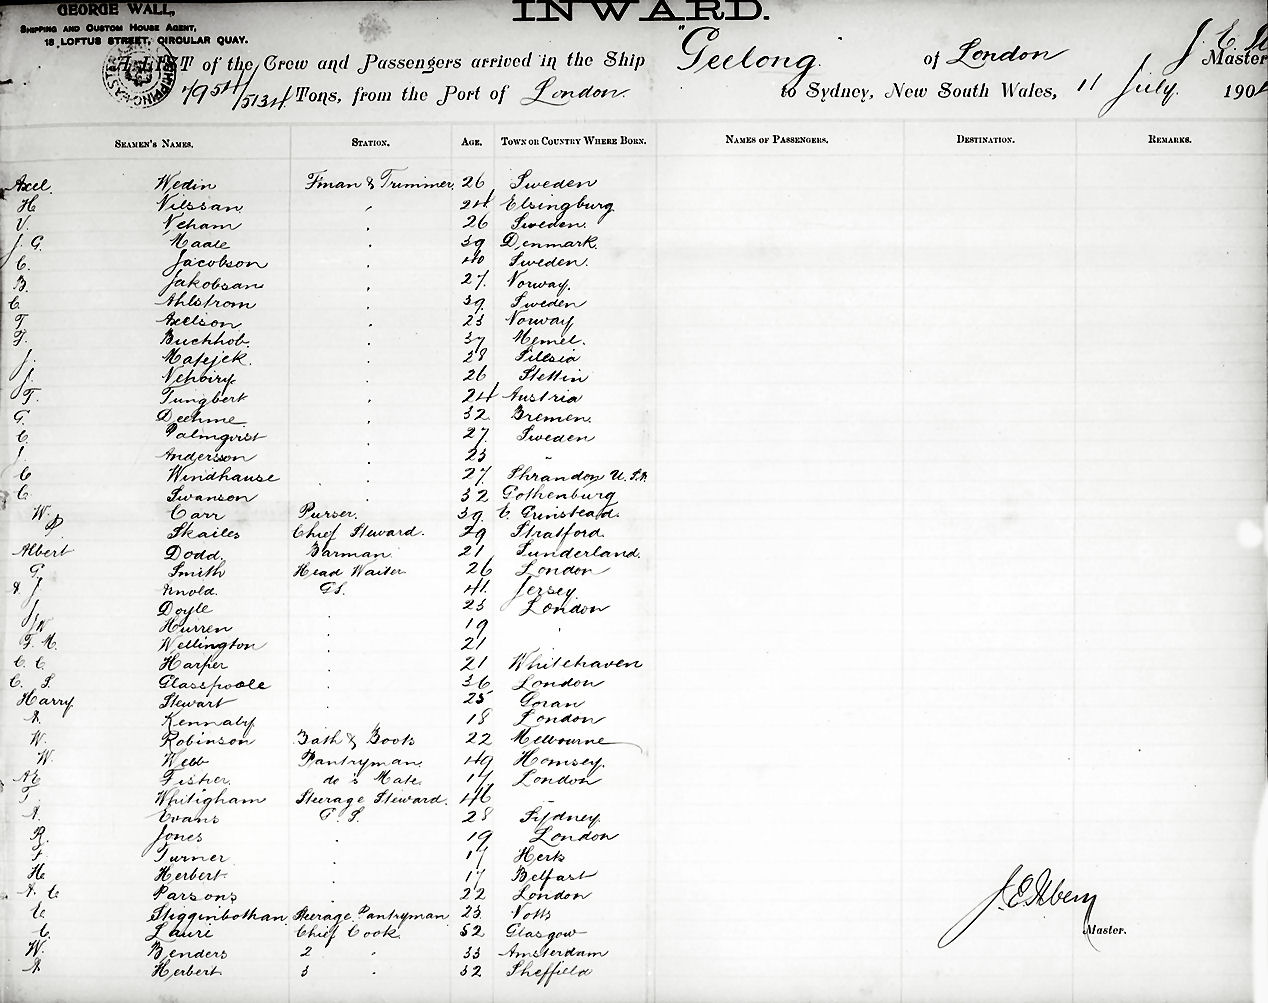 GEORGE WALL,
SHIPPING AND CUSTOM HOUSE AGENT,
18 LOFTUS STREET, CIRCULAR QUAY.
INWARD.
A LIST of the Crew and Passengers arrived in the Ship "Geelong" of London J E Master
7954/5134 Tons, from the Port of London to Sydney, New South Wales, 11 July 190
SEAMEN'S NAMES. STATION. AGE. TOWN OR COUNTRY WHERE BORN. NAMES OF PASSENGERS. DESTINATION. REMARKS.
Axel Wedin Fman & Trimmer 26 Sweden
H Nilssan " 24 Elsingburg
V. Veham " 26 Sweden
J. G. Maale " 39 Denmark
C. Jacobson " 40 Sweden
B. Jakobsan " 27 Norway
C. Ahlstrom " 39 Sweden
T Axelson " 23 Norway
F. Buchhob " 37 Memel
J. Matejek " 28 Silesia
J. " 26 Stettin
F. Tungbert " 24 Austria
G. Deehme " 32 Bremen
C. Palmqvist " 27 Sweden
J. Anderson " 23 "
C Windhause " 27 U.S.A.
C. Swanson " 32 Gothenburg
W. Carr Purser 39 E. Grinstead
P Skailes Chief Steward 29 Stratford
Albert Dodd Barman 21 Sunderland
G. Smith Head Waiter 26 London
A J Arnold GS. 41 Jersey
J Doyle " 23 London
J W Hurren " 19 "
F. M. Wellington " 21
C. C. Harper " 21 Whitehaven
C. S. Glasspoole " 36 London
Harry Stewart " 25 Goran
A. Kennaby " 18 London
W. Robinson Bath & Boots 22 Melbourne
W. Webb Pantryman 49 Homsey
AE Fisher do's Mate 17 London
T. Whitigham Steerage Steward 46 "
A. Evans G. S. 28 Sydney
R. Jones " 19 London
F Turner " 17 Herts
H Herbert " 17 Belfast
A. C Parsons " 22 London
E Higginbotham Steerage Pantryman 23 Notts
C. Lauri Chief Cook 52 Glasgow
W. Benders 2 " 33 Amsterdam
A Herbert 3 " 32 Sheffield
J. E. Ilbery
Master.